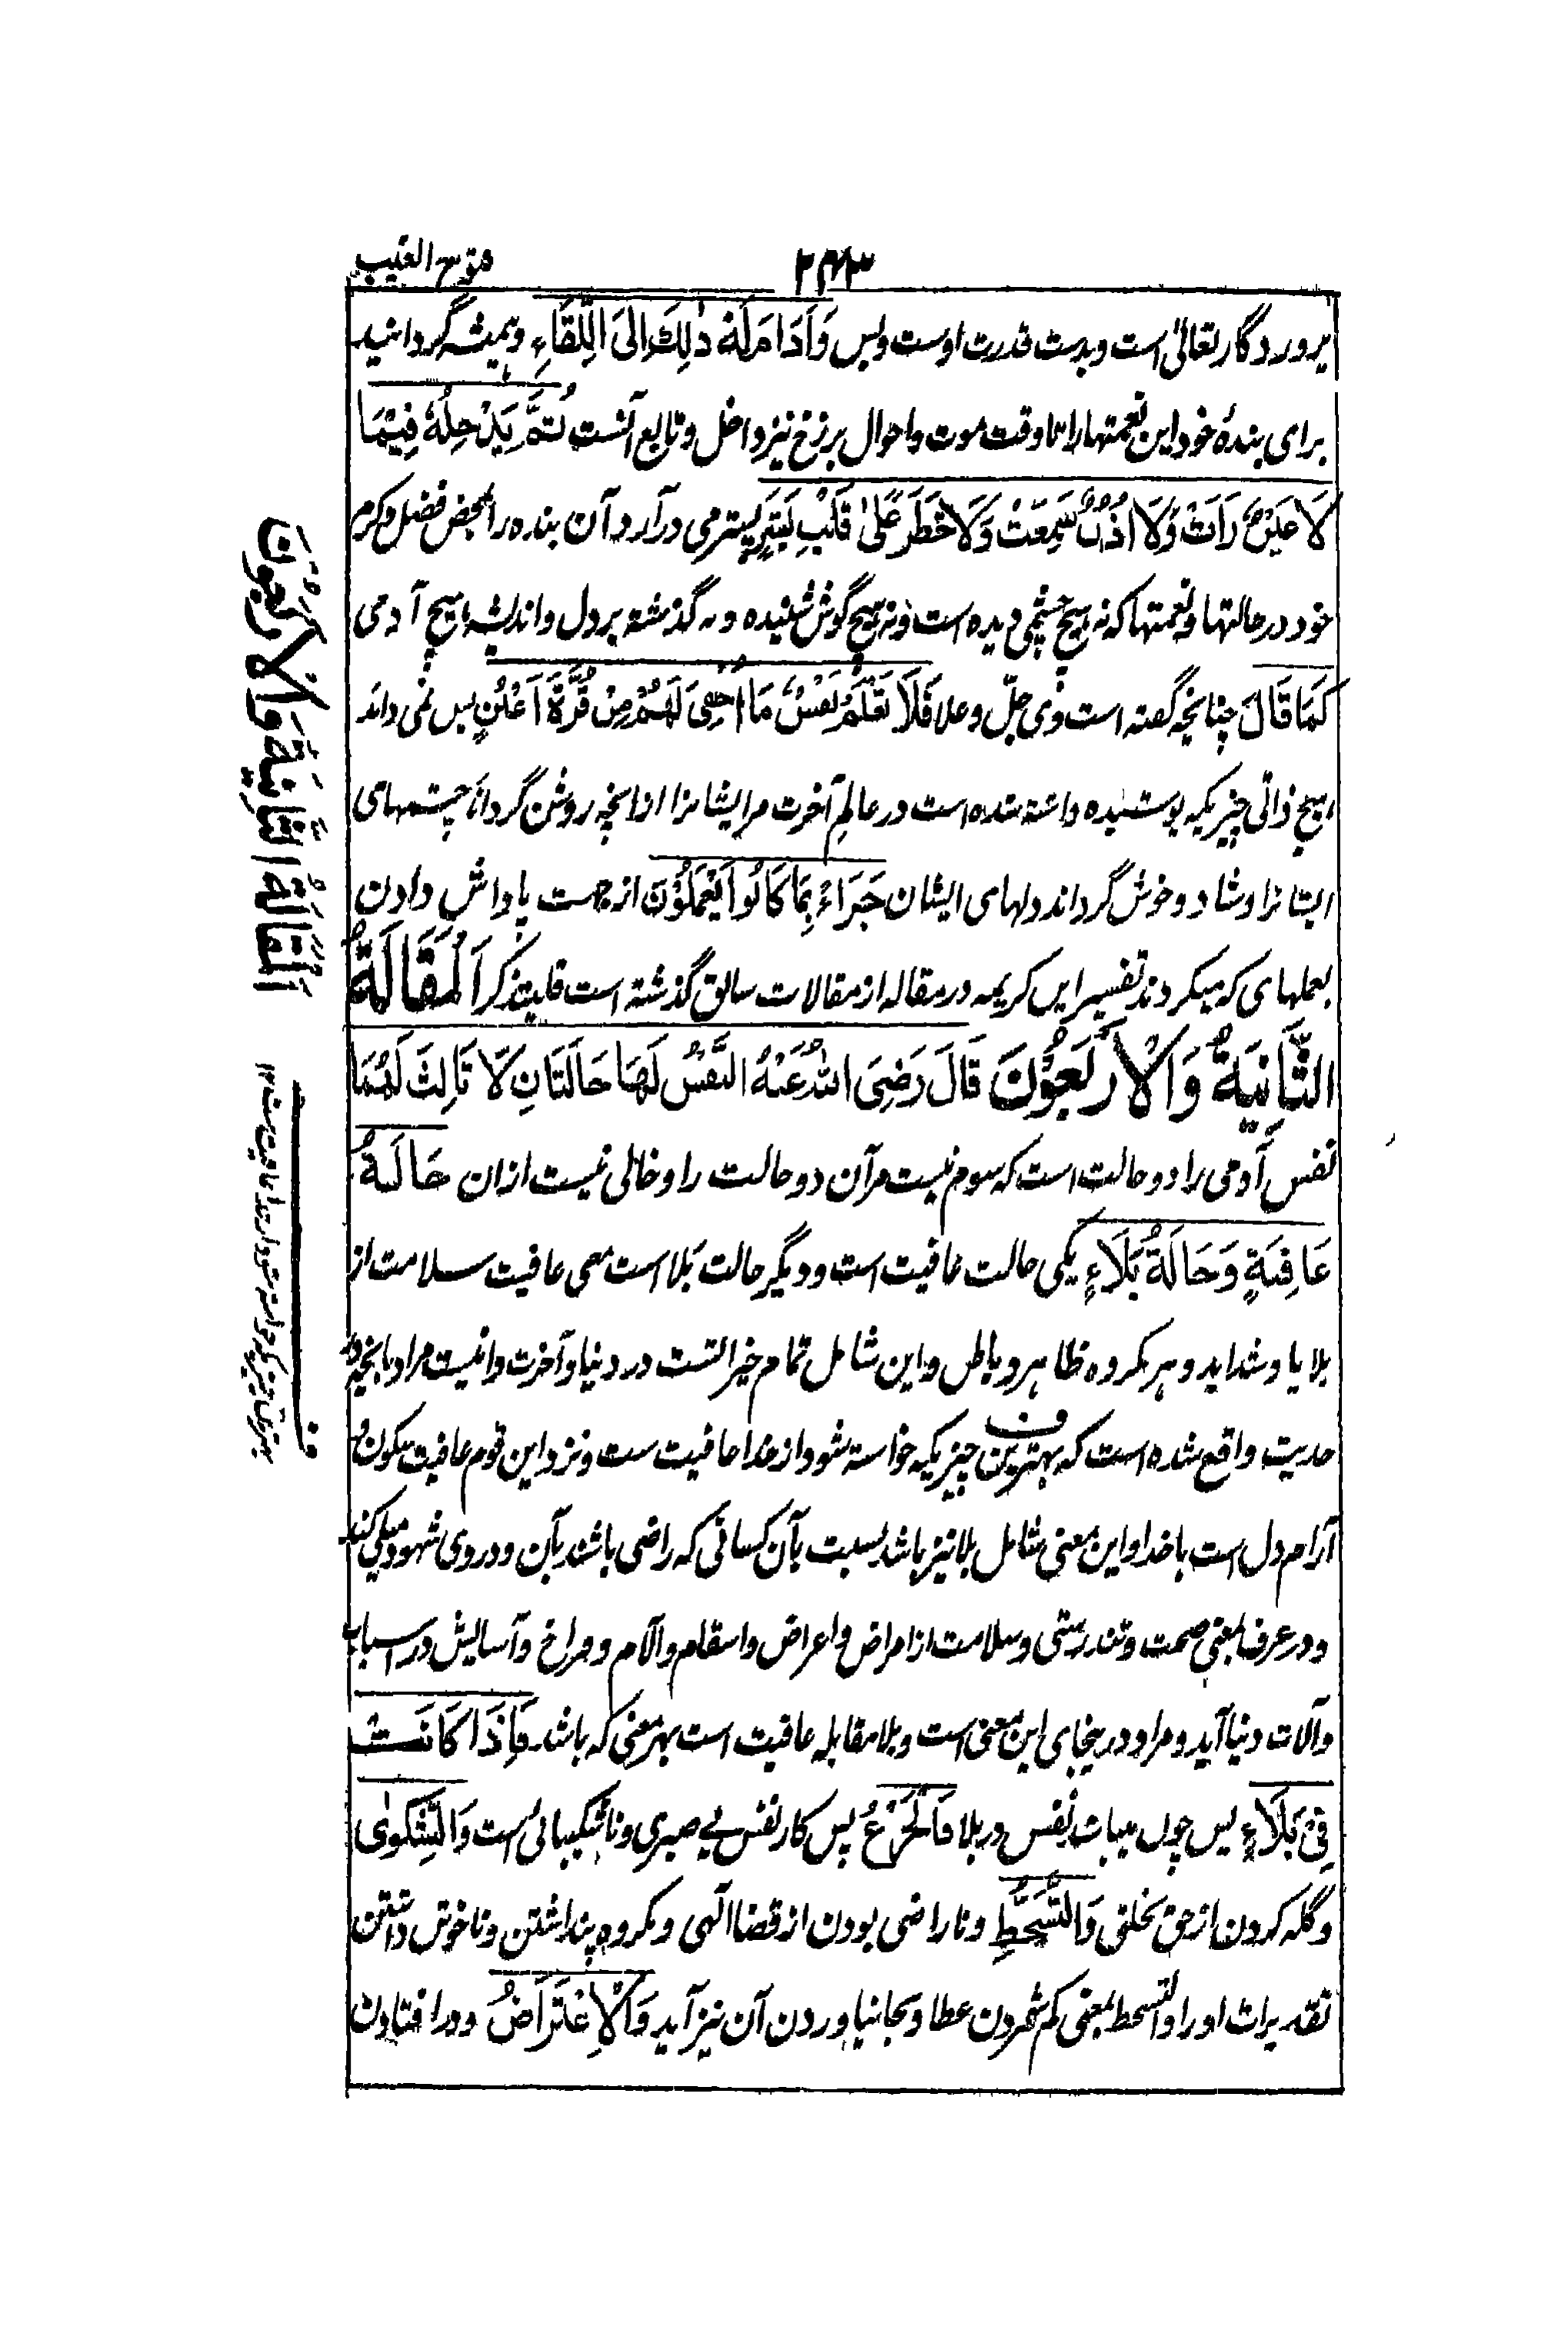 ۲۴۳
فتوح الغیب
پروردگار تعالیٰ است و بدست قدرت اوست و بس وَاَدَامَ لَهٗ ذٰلِكَ اِلَى اللِّقَآءِ و همیشه گردانید
برای بندهٔ خود این نعمتها را تا وقت موت و احوال برزخ نیز داخل و تابع آنست ثُمَّ يُدْخِلُهٗ فِيْمَا
لَا عَيْنٌ رَاَتْ وَلَا اُذُنٌ سَمِعَتْ وَلَا خَطَرَ عَلٰى قَلْبِ بَشَرٍ پستر می درآرد آن بنده را بمحض فضل و کرم
خود در حالتها و نعمتها که نه هیچ چشمی دیده است و نه هیچ گوش شنیده و نه گذشته بر دل و اندیشهٔ هیچ آدمی
كَمَا قَالَ چنانچه گفته است وی جلّ و علا فَلَا تَعْلَمُ نَفْسٌ مَا اُخْفِيَ لَهُمْ مِنْ قُرَّةِ اَعْيُنٍ پس نمی داند
هیچ ذاتی چیزیکه پوشیده داشته شده است در عالمِ آخرت مر ایشانرا از انچه روشن گرداند چشمهای
ایشانرا و شاد و خوش گرداند دلهای ایشان جَزَآءً بِمَا كَانُوا يَعْمَلُوْنَ از جهت پاداش دادن
بعملهای که میکردند تفسیر این کریمه در مقاله از مقالات سابق گذشته است فلیتذکر اَلْمَقَالَةُ
الثَّانِيَةُ وَالْاَرْبَعُوْنَ قَالَ رَضِيَ اللّٰهُ عَنْهُ النَّفْسُ لَهَا حَالَتَانِ لَا ثَالِثَ لَهُمَا
نفس آدمی را دو حالت است که سوم نیست مر آن دو حالت را و خالی نیست ازان حَالَةُ
عَافِيَةٍ وَحَالَةُ بَلَآءٍ یکی حالت عافیت است و دیگر حالت بلا است معنی عافیت سلامت از
بلایا و شداید و هر مکروه ظاهر و باطن و این شامل تمام خیر است در دنیا و آخرت و اینست مراد بانچه در
حدیث واقع شده است که بهترین چیزیکه خواسته شود از خدا عافیت ست و نزد این قوم عافیت سکون و
آرام دل است با خدا و این معنی شامل بلا نیز باشد نسبت بآن کسانی که راضی باشند بآن و در وی شهود مبلی کنند
و در عرف بمعنی صحت و تندرستی و سلامت از امراض و اعراض و اسقام و آلام و فراخ و آسایش در اسباب
و آلات دنیا آید و مراد در ینجا ی این معنی است و بلا مقابل عافیت است بهر معنی که باشد فَاِذَا كَانَتْ
فِيْ بَلَآءٍ پس چون میباشد نفس در بلا فَالْجَزَعُ پس کار نفس بے صبری و ناشکیبائی است وَالشَّكْوٰى
و گله کردن از حق بخلق وَالتَّسَخُّطِ و ناراضی بودن از قضا الٰهی و مکروه پنداشتن و ناخوش داشتن
تقدیرات او را و التسخط بمعنی کم شمردن عطا و بجا نیاوردن آن نیز آید وَالْاِعْتِرَاضُ و در افتادن
اَلْمَقَالَةُ الثَّانِيَةُ وَالْاَرْبَعُوْنَ
ف
بهترین چیزیکه خواسته شود از خدا عافیت ست ۱۲